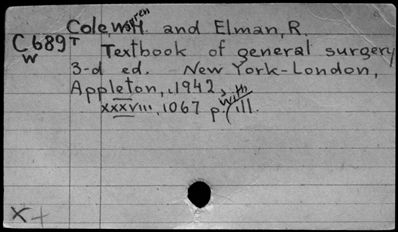 Cole, W.H. and Elman, R.
C689T Textbook of general surgery
W 3-d ed. New York-London,
Appleton, 1942, with
xxxviii, 1067 p. ill.
X+